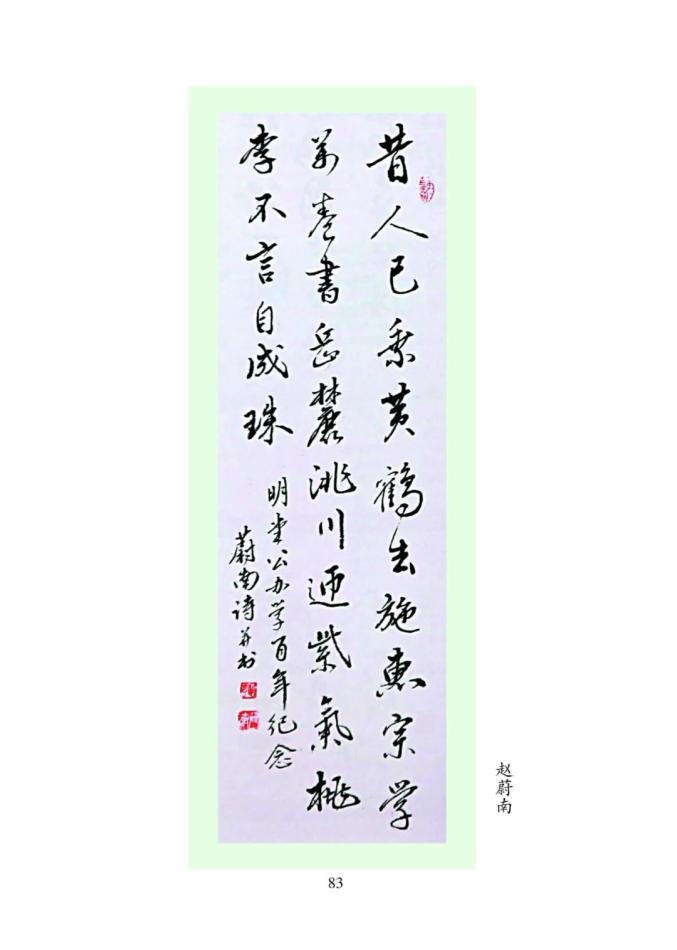 昔人已乘黄鹤去施惠宗学
万卷书岳麓洮川迎紫气桃
李不言自成珠
明堂公办学百年纪念
蔚南诗并书
赵蔚南
83